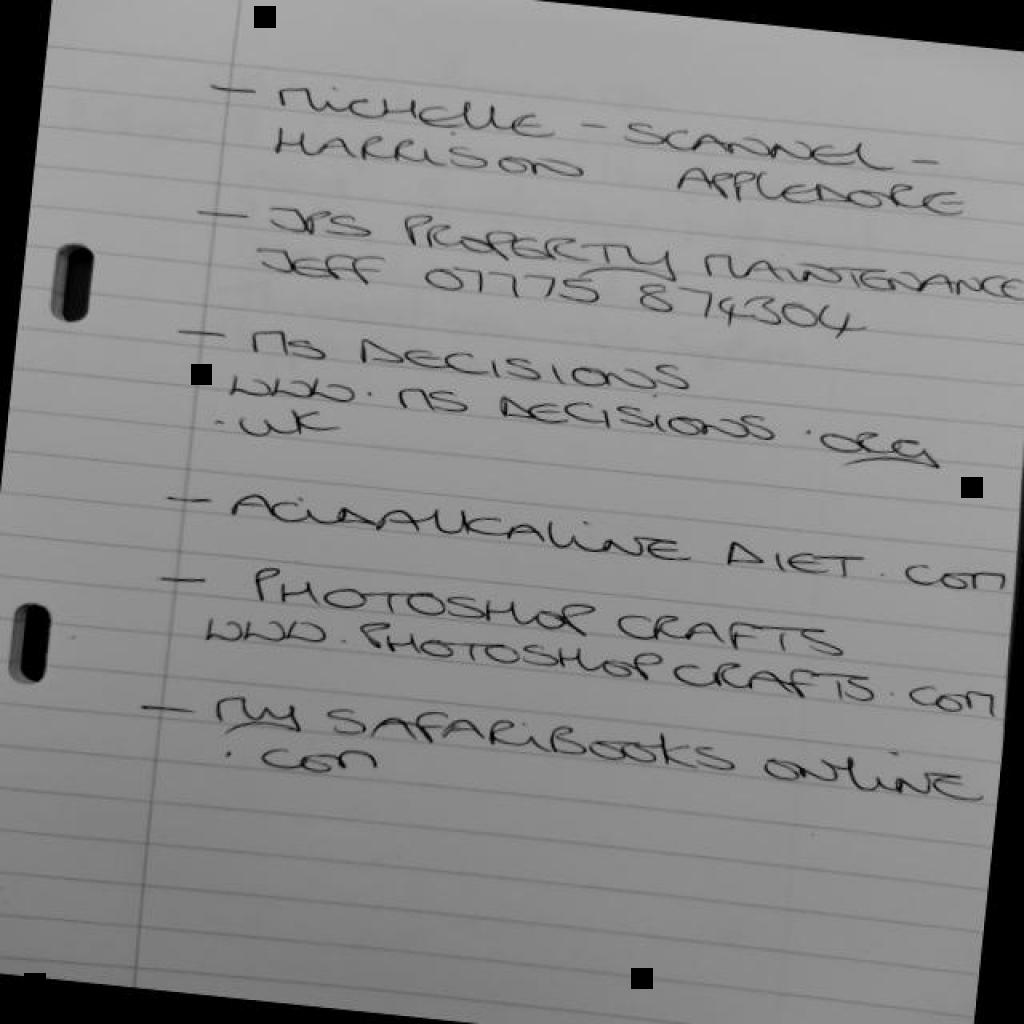 - MICHELLE - SCANNEL -
HARRISON APPLEDORE
- JPS PROPERTY MAINTENANCE
JEFF 07775 874304
- MS DECISIONS
WWW. MS DECISIONS .ORG
.UK
- ACIDALKALINE DIET. COM
- PHOTOSHOP CRAFTS
WWW. PHOTOSHOPCRAFTS. COM
- MY SAFARIBOOKS ONLINE
. COM